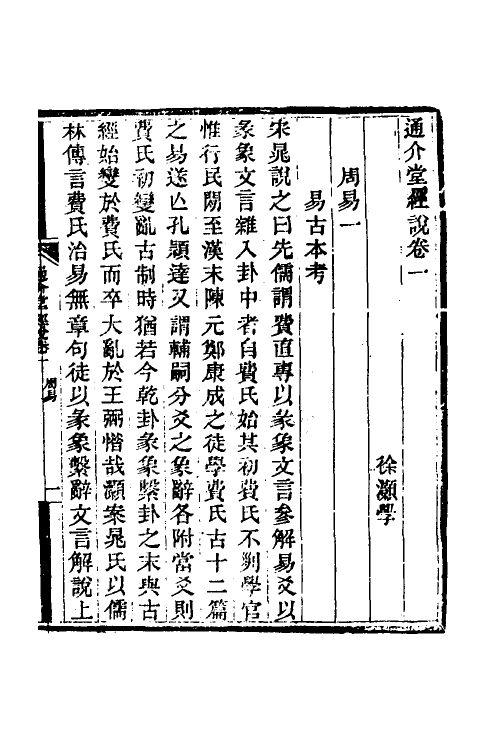 通介堂經說卷一
徐灝學
周易一
易古本考
宋晁說之曰先儒謂費直專以彖象文言參解易爻以
彖象文言雜入卦中者自費氏始其初費氏不列學官
惟行民閒至漢末陳元鄭康成之徒學費氏古十二篇
之易遂亾孔穎達又謂輔嗣分爻之象辭各附當爻則
費氏初變亂古制時猶若今乾卦彖象繫卦之末與古
經始變於費氏而卒大亂於王弼惜哉灝案晁氏以儒
林傳言費氏治易無章句徒以彖象繫辭文言解說上
通介堂經說卷一
周易
一